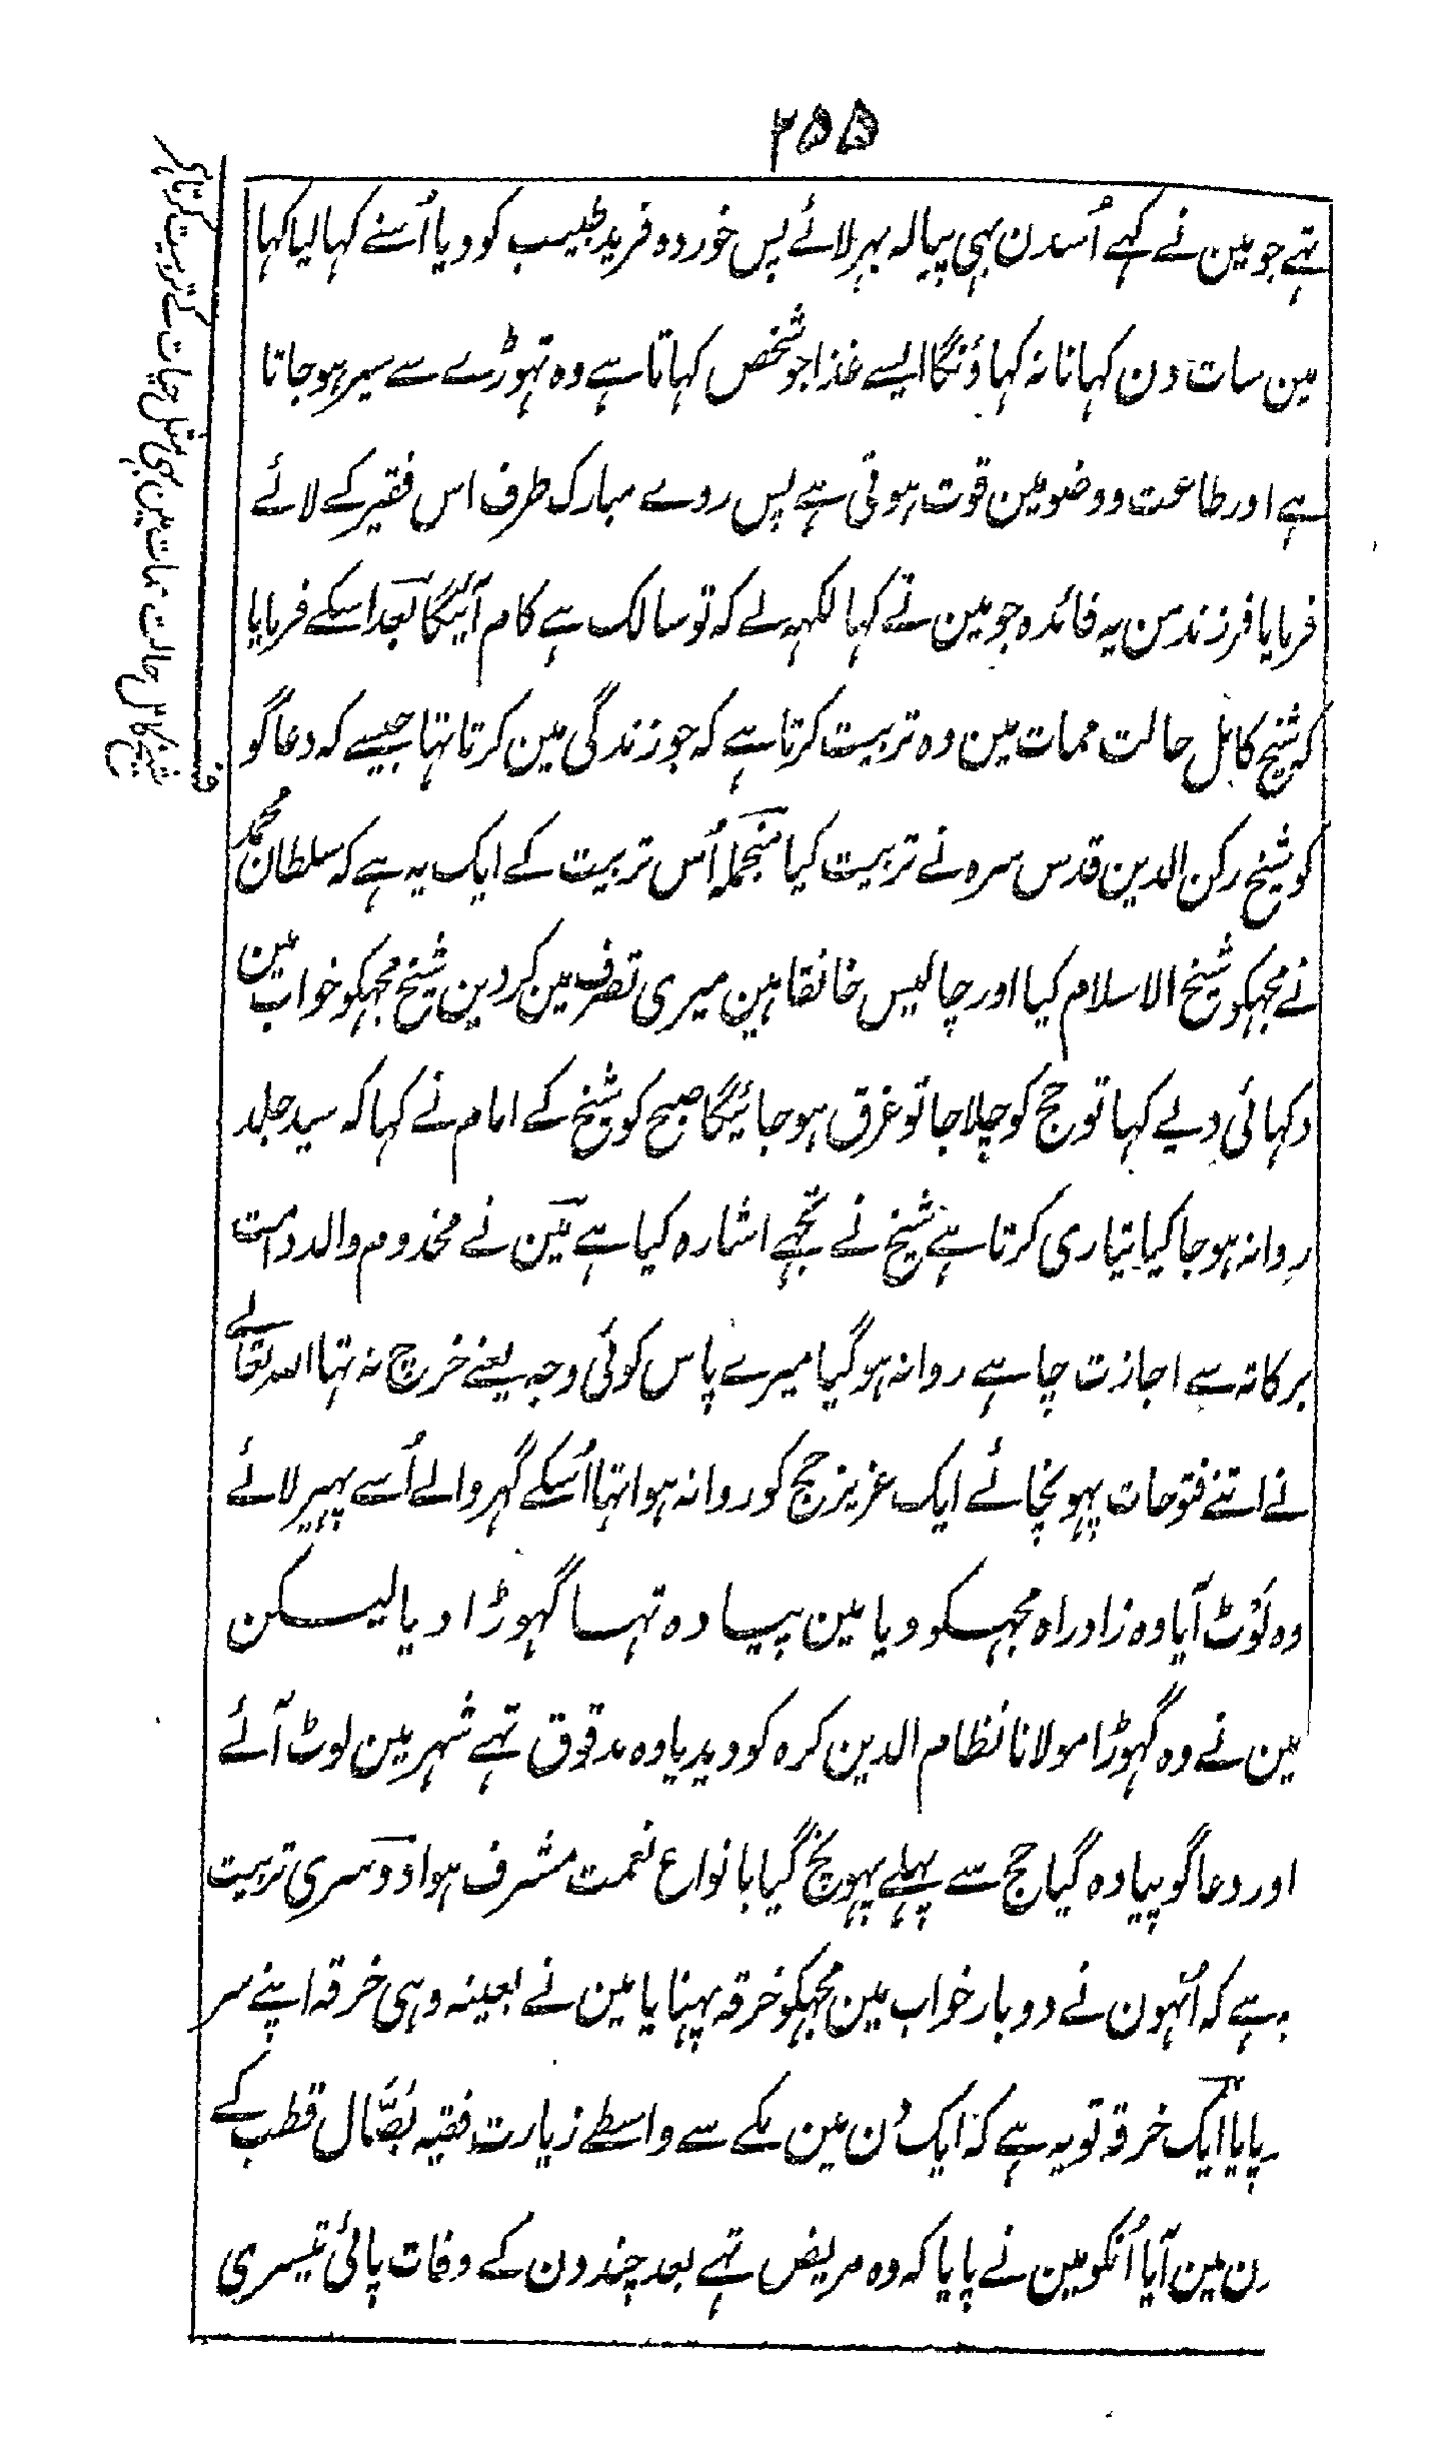 ۲۵۵
تہے جو مین نے کہے اُسدن بہی پیالہ بہر لائے پس خوردہ فرید طبیب کو دیا اُسنے کہا لیا کہا
مین سات دن کہانا نہ کہاؤنگا ایسے غذا جو شخص کہاتا ہے وہ تہوڑے سے سیر ہو جاتا
ہے اور طاعت و وضو مین قوت ہوتی ہے پس روے مبارک طرف اس فقیر کے لائے
فرمایا فرزند من یہ فائدہ جو مین نے کہا لکہہ لے کہ تو سالک ہے کام آئیگا بعد اسکے فرمایا
کہ شیخ کامل حالت ممات مین وہ تربیت کرتا ہے کہ جو زندگی مین کرتا تہا جیسے کہ دعاگو
کو شیخ رکن الدین قدس سرہ نے تربیت کیا منجملہ اُس تربیت کے ایک یہ ہے کہ سلطان محمد
نے مجہکو شیخ الاسلام کیا اور چالیس خانقاہین میری تصرف مین کر دین شیخ مجہکو خواب مین
دکہائی دیے کہا تو حج کو چلا جا تو غرق ہو جائیگا صبح کو شیخ کے امام نے کہا کہ سید جلد
روانہ ہو جا کیا تیاری کرتا ہے شیخ نے تجہے اشارہ کیا ہے مین نے مخدوم والد دامت
برکاتہ سے اجازت چاہے روانہ ہو گیا میرے پاس کوئی وجہ یعنے خرچ نہ تہا اللہ تعالے
نے اتنے فتوحات پہونچائے ایک عزیز حج کو روانہ ہوا تہا اُسکے گہر والے اُسے پہیر لائے
وہ لَوٹ آیا وہ زادراہ مجہکو دیا مین پیادہ تہا گہوڑا دیا لیکن
مین نے وہ گہوڑا مولانا نظام الدین کرہ کو دیدیا وہ مدقوق تہے شہر مین لوٹ آئے
اور دعاگو پیادہ گیا حج سے پہلے پہونچ گیا بانواع نعمت مشرف ہوا دوسری تربیت
یہ ہے کہ اُنہون نے دو بار خواب مین مجہکو خرقہ پہنایا مین نے بعینہ وہی خرقہ اپنے سر
پر پایا ایک خرقہ تو یہ ہے کہ ایک دن مین مکے سے واسطے زیارت فقیہ بَصَّال قطب کے
عدن مین آیا اُنکو مین نے پایا کہ وہ مریض تہے بعد چند دن کے وفات پائی تیسری
ف
شیخ کامل حالت ممات مین بہی مثل حیات کے تربیت کرتا ہے